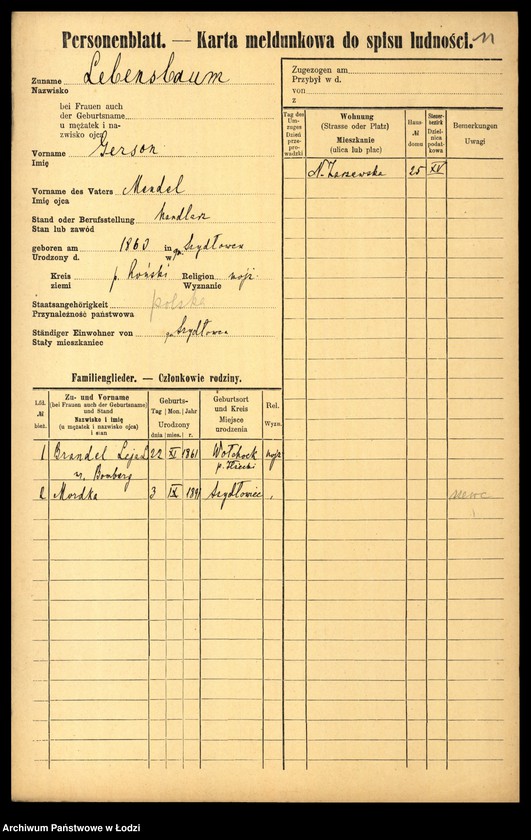 Personenblatt. — Karta meldunkowa do spisu ludności.
Zuname Lebensbaum
Nazwisko
bei Frauen auch
der Geburtsname
u mężatek i na-
zwisko ojca
Vorname Gerson
Imię
Vorname des Vaters Mendel
Imię ojca
Stand oder Berufsstellung handlarz
Stan lub zawód
geboren am 1860 in Szydłowcu
Urodzony d. w
Kreis p. Koński Religion mojż.
ziemi Wyznanie
Staatsangehörigkeit polska
Przynależność państwowa
Ständiger Einwohner von Szydłowca
Stały mieszkaniec
Zugezogen am
Przybył w d.
von
z
Tag des
Um-
zuges
Dzień
prze-
prowadzki
Wohnung
(Strasse oder Platz)
Mieszkanie
(ulica lub plac)
Haus-
№
domu
Steuer-
bezirk
Dziel-
nica
podat-
kowa
Bemerkungen
Uwagi
N. Zarzewska 25 XV
Familienglieder. — Członkowie rodziny.
Lfd.
№
bież.
Zu- und Vorname
(bei Frauen auch der Geburtsname)
und Stand
Nazwisko i imię
(u mężatek i nazwisko ojca)
i stan
Geburts-
Tag Mon. Jahr
Urodzony
dnia mies. r.
Geburtsort
und Kreis
Miejsce
urodzenia
Rel.
Wyzn.
1 Brandel Laja 22 XI 1861 Wołchock mojż
z. Bomberg p. Iłżecki
2 Mordka 3 IX 1891 Szydłowiec
szewc
Archiwum Państwowe w Łodzi